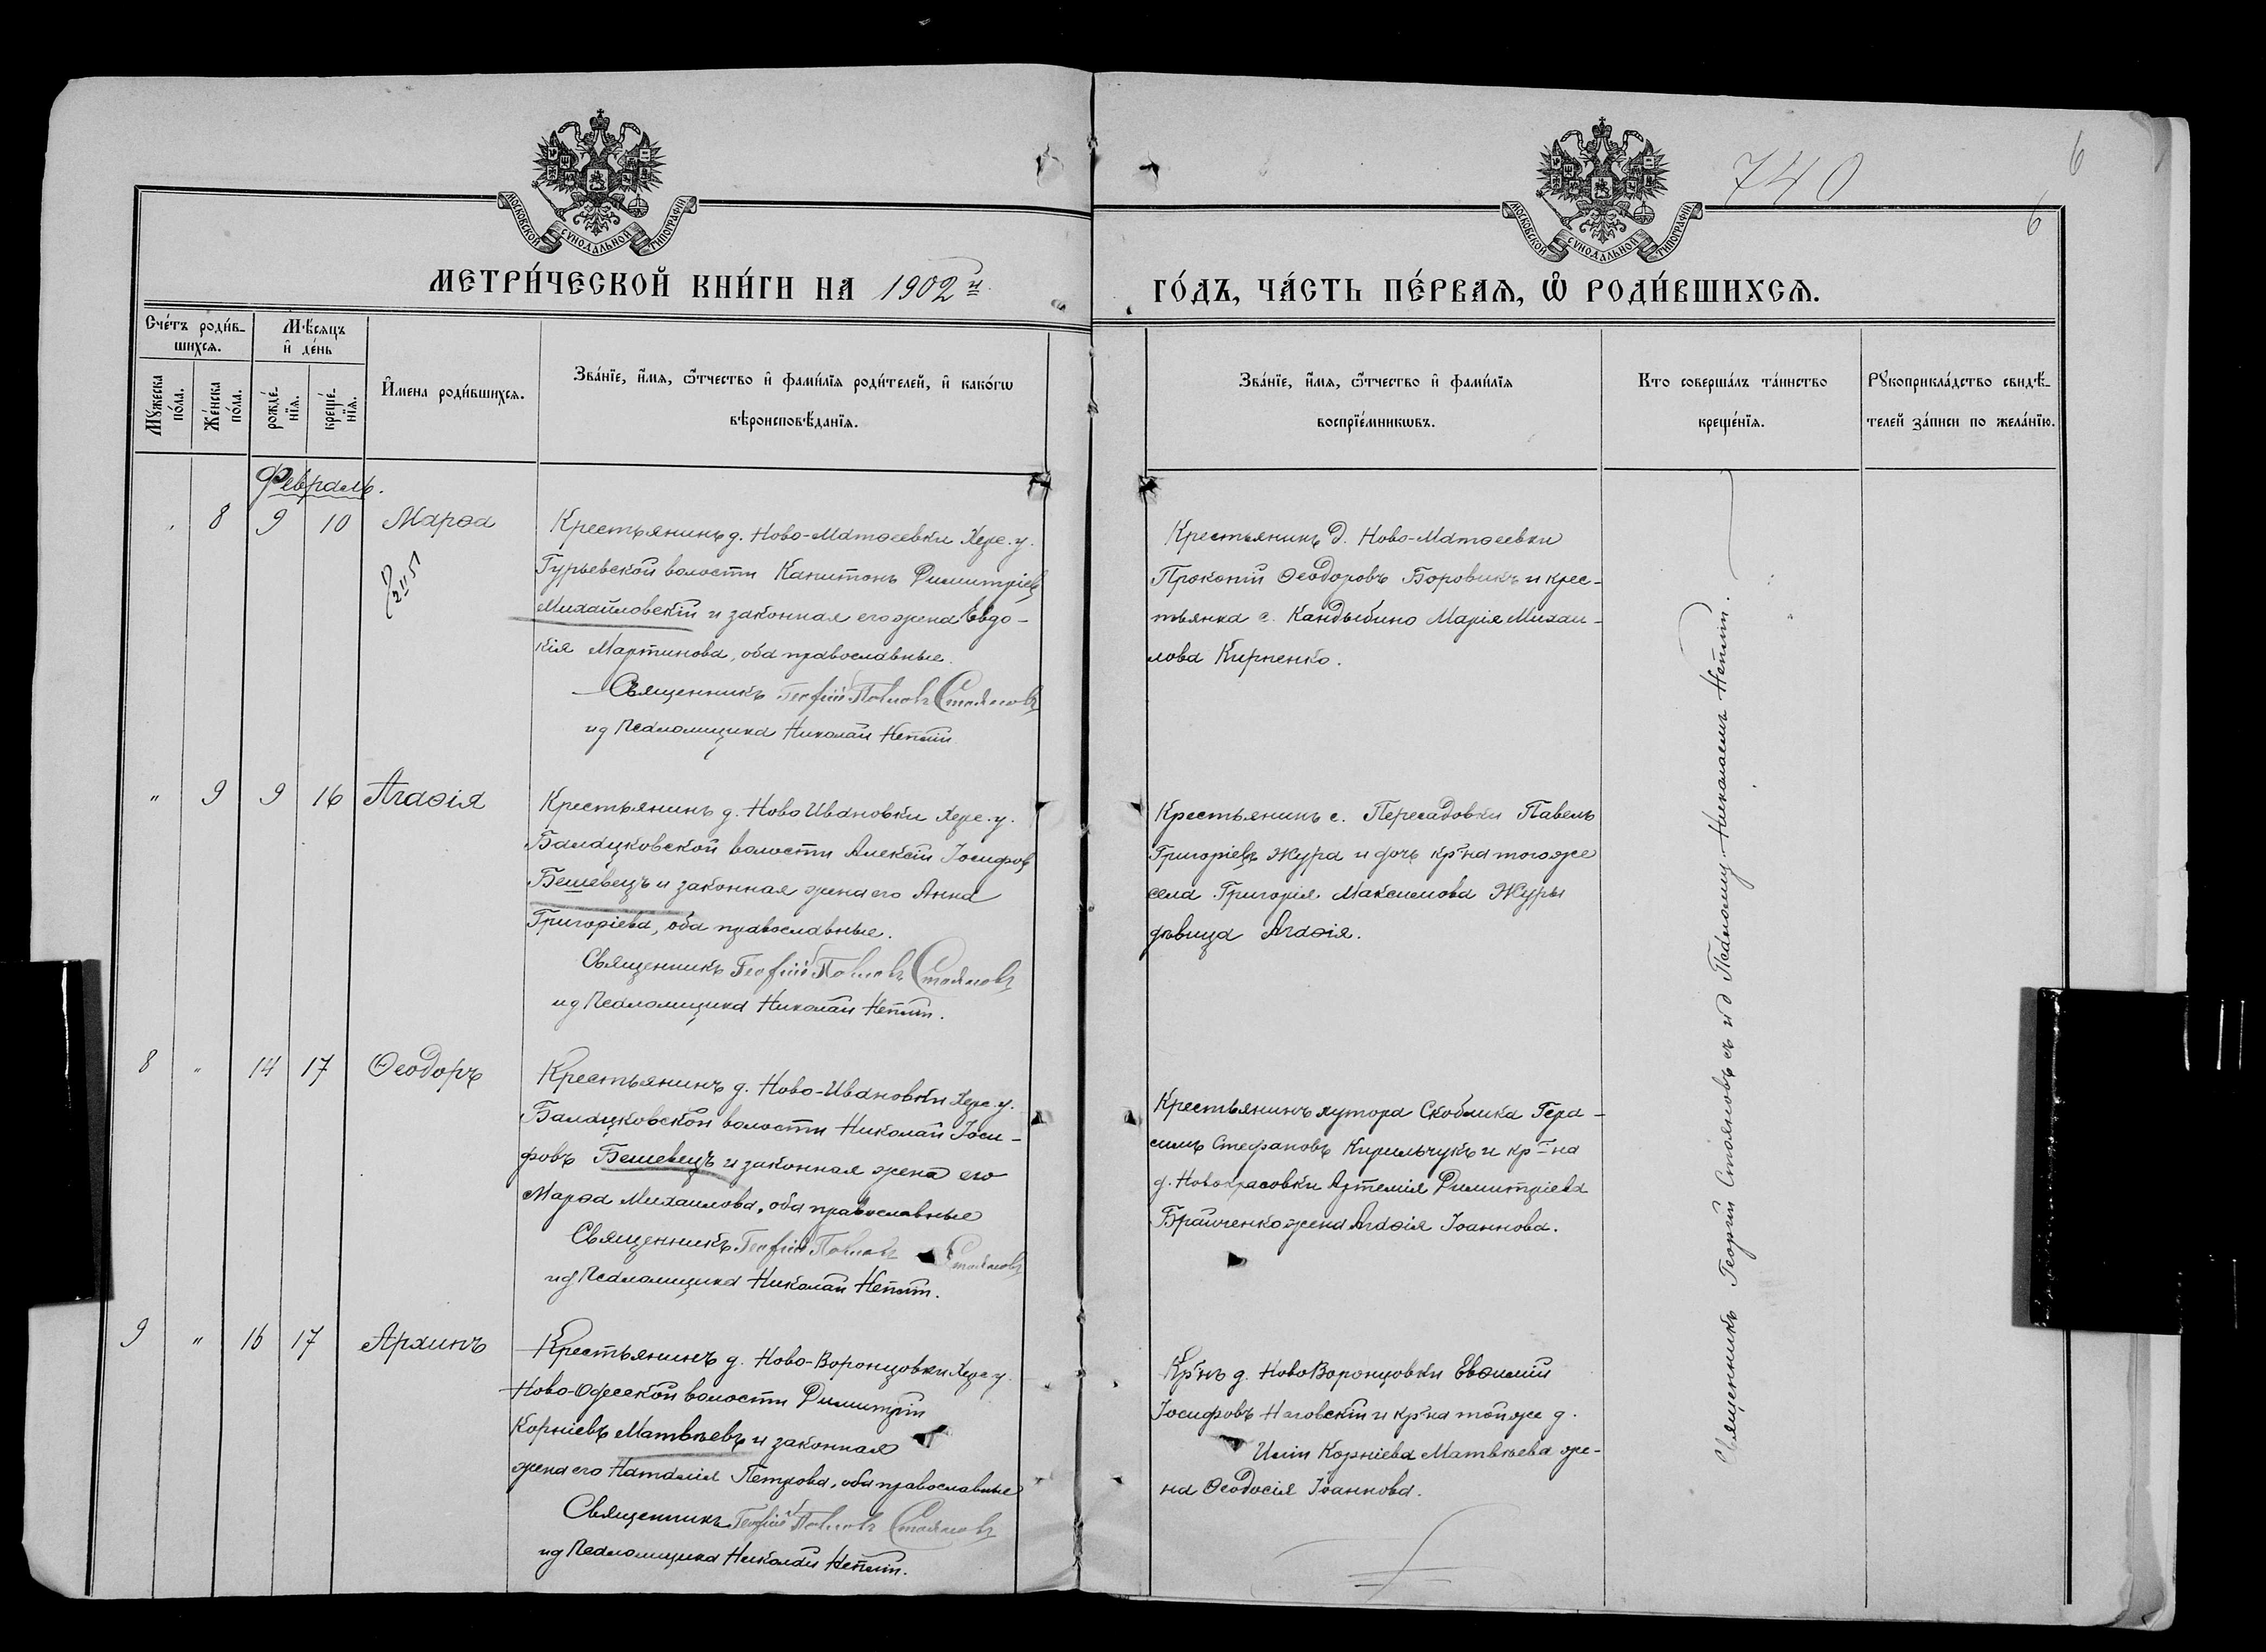 740
6
6
МОСКОВСКОЙ СѴНОДАЛЬНОЙ ТИПОГРАФІИ
МОСКОВСКОЙ СѴНОДАЛЬНОЙ ТИПОГРАФІИ
МЕТРИ́ЧЕСКОЙ КНИ́ГИ НА 1902 й
ГО́ДЪ, ЧА́СТЬ ПЕ́РВАѦ, Ѽ РОДИ́ВШИХСѦ.
Сче́тъ роди́в-
шихсѧ.
Мꙋ́жеска по́ла.
Же́нска по́ла.
Мѣ́сяцъ
и҆ де́нь
рожде́-
нїѧ.
креще́-
нїѧ.
И҆́мена роди́вшихсѧ.
Зва́нїе, и҆́мѧ, ѻ҆́тчество и҆ фами́лїѧ роди́телей, и҆ како́гѡ
вѣроисповѣ́данїѧ.
Зва́нїе, и҆́мѧ, ѻ҆́тчество и҆ фами́лїѧ
воспрїе́мникѡвъ.
Кто соверша́лъ та́инство
креще́нїѧ.
Рꙋкоприкла́дство свидѣ́-
телей за́писи по жела́нїю.
Февраль.
" 8 9 10 Марѳа
Крестьянинъ д. Ново-Матѳеевки Херс. у.
Гурьевской волости Капитонъ Димитріевъ
Михайловскій и законная его жена Евдо-
кія Мартинова, оба православные.
Священникъ Георгій Павловъ Стояновъ
ид Псаломщика Николай Непѣин
Крестьянинъ д. Ново-Матѳеевки
Прокопій Ѳеодоровъ Боровикъ и крес-
тьянка с. Кандыбино Марія Михаи-
лова Кирпенко.
" 9 9 16 Агаѳія
Крестьянинъ д. Ново Ивановки Херс. у.
Балацковской волости Алексій Іосифовъ
Бешевецъ и законная жена его Анна
Григоріева, оба православные.
Священникъ Георгій Павловъ Стояновъ
ид Псаломщика Николай
Крестьянинъ с. Пересадовки Павелъ
Григоріевъ Жура и дочь кр-на того же
села Григорія Максимова Журы
дѣвица Агаѳія.
8 " 14 17 Ѳеодоръ
Крестьянинъ д. Ново-Ивановки Херс. у.
Балацковской волости Николай Іоси-
фовъ Бешевецъ и законная жена его
Марѳа Михаилова, оба православные
Священникъ Георгій Павловъ Стояновъ
ид Псаломщика Николай
Крестьянинъ хутора Скоблика Гера-
симъ Стефановъ Кирильчукъ и кр-на
д. Новокрасовки Артемія Димитріева
Брайченко жена Агаѳія Іоаннова.
9 " 16 17 Архипъ
Крестьянинъ д. Ново-Воронцовки Херс у.
Ново-Одесской волости Димитрій
Корніевъ Матвѣевъ и законная
жена его Наталія Петрова, оба православные
Священникъ Георгій Павловъ Стояновъ
ид Псаломщика Николай
Кр-нъ д. Ново Воронцовки Евѳимій
Іосифовъ Наговскій и кр-на той же д.
Иліи Корніева Матвѣева же-
на Ѳеодосія Іоаннова.
Священникъ Георгій Стояновъ съ ид Псаломщ. Николаемъ